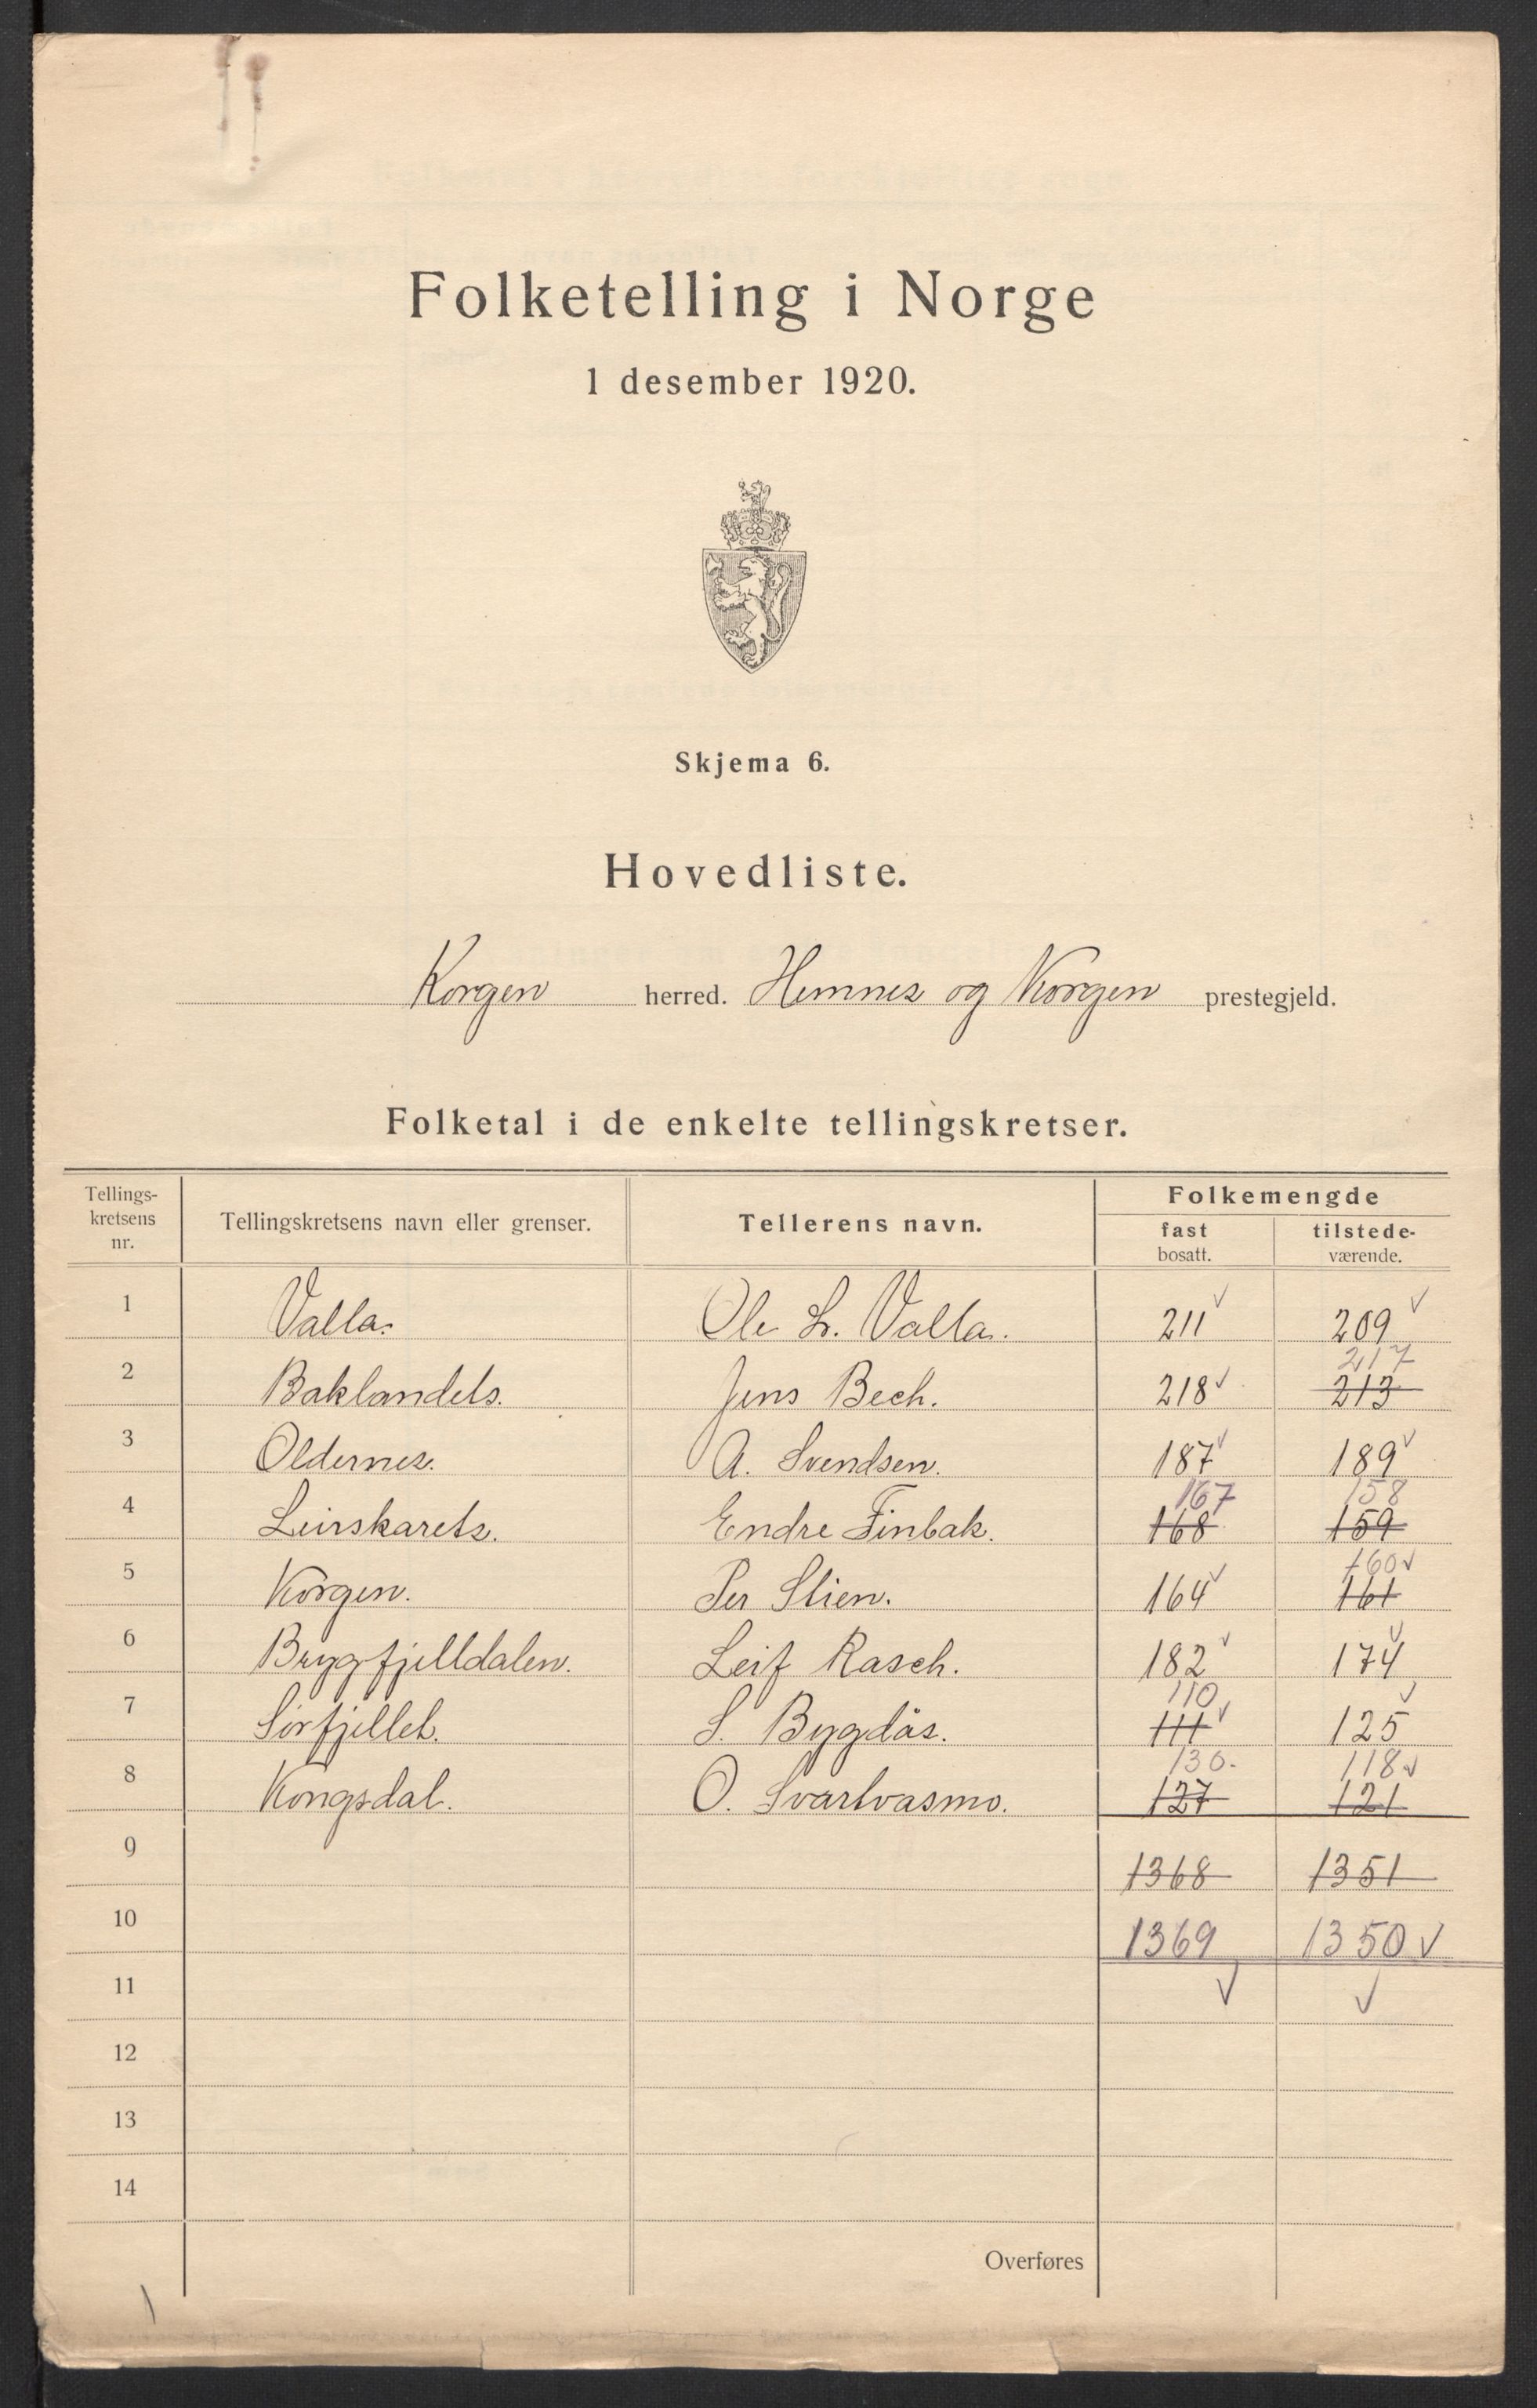 Folketelling i Norge
1 desember 1920.
Skjema 6.
Hovedliste.
Korgen herred. Hemnes og Korgen prestegjeld.
Folketal i de enkelte tellingskretser.
Tellings-kretsens nr. Tellingskretsens navn eller grenser. Tellerens navn. Folkemengde fast bosatt. tilstede-værende.
1 Valla. Ole L. Valla. 211 209
217
2 Baklandets. Jens Bech. 218 213
3 Oldernes. A. Svendsen. 187 189
167 158
4 Leirskarets. Endre Finbak. 168 159
160
5 Korgen. Per Stien. 164 161
6 Brygfjelldalen. Leif Rasch. 182 174
110
7 Sörfjellet. S. Bygdås. 111 125
130. 118
8 Kongsdal. O. Svartvasmo. 127 121
9 1368 1351
10 1369 1350
11
12
13
14
Overføres